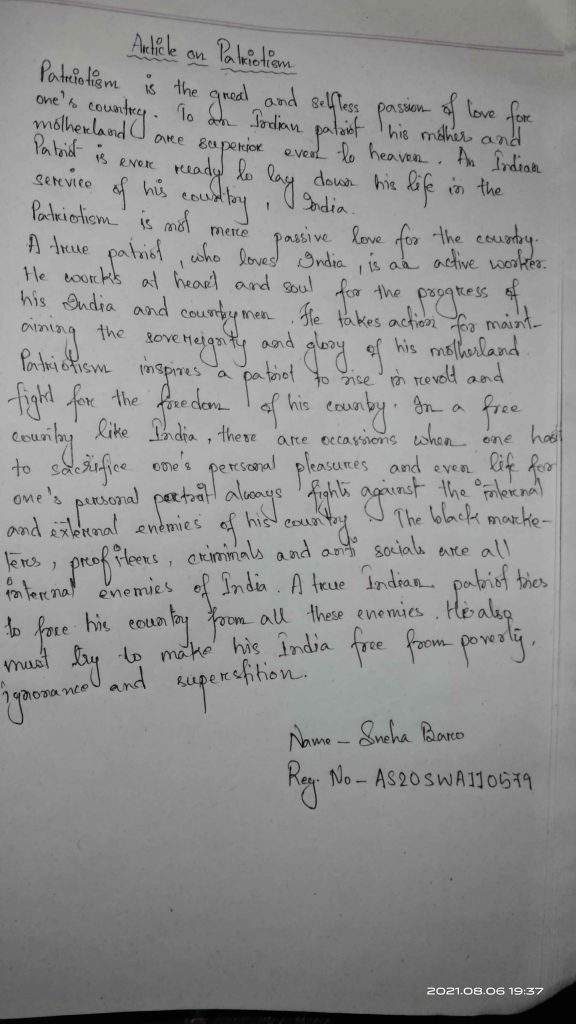 Article on Patriotism
Patriotism is the great and selfless passion of love for
one's country. To an Indian patriot his mother and
motherland are superior even to heaven. An Indian
Patriot is ever ready to lay down his life in the
service of his country, India.
Patriotism is not mere passive love for the country.
A true patriot, who loves India, is an active worker.
He works at heart and soul for the progress of
his India and countrymen. He takes action for maint-
aining the sovereignty and glory of his motherland.
Patriotism inspires a patriot to rise in revolt and
fight for the freedom of his country. In a free
country like India, there are occassions when one has
to sacrifice one's personal pleasures and even life for
one's personal patriot always fights against the internal
and external enemies of his country. The black marke-
ters, profiteers, criminals and anti socials are all
internal enemies of India. A true Indian patriot tries
to free his country from all these enemies. He also
must try to make his India free from poverty,
ignorance and superstition.
Name - Sneha Baro
Reg. No - AS20SWA110579
2021.08.06 19:37